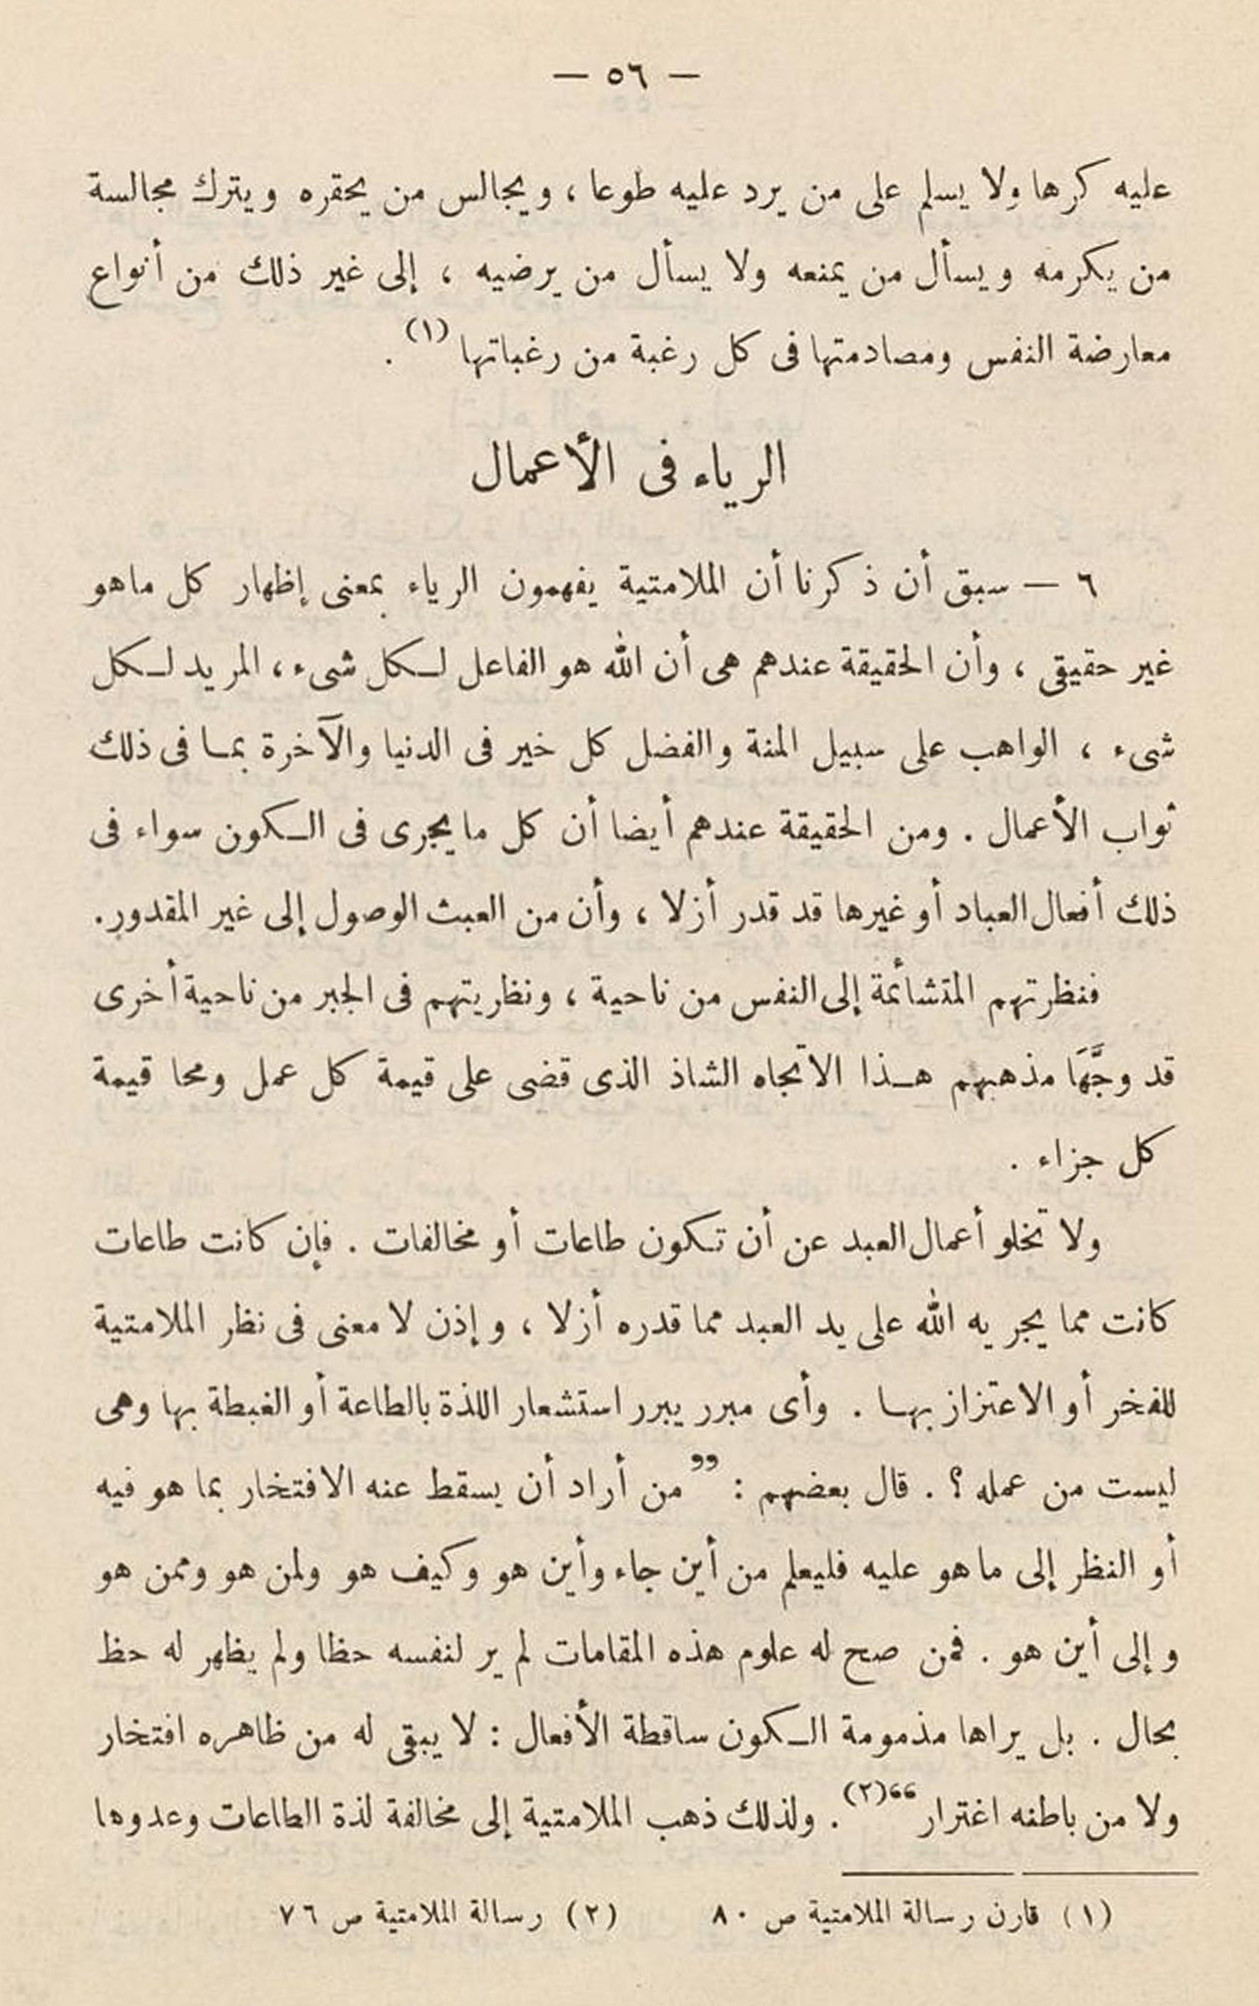 — ٥٦ —
عليه كرها ولا يسلم على من يرد عليه طوعا ، ويجالس من يحقره ويترك مجالسة
من يكرمه ويسأل من يمنعه ولا يسأل من يرضيه ، إلى غير ذلك من أنواع
معارضة النفس ومصادمتها فى كل رغبة من رغباتها (١) .
الرياء فى الأعمال
٦ — سبق أن ذكرنا أن الملامتية يفهمون الرياء بمعنى إظهار كل ماهو
غير حقيقى ، وأن الحقيقة عندهم هى أن الله هو الفاعل لكل شىء ، المريد لكل
شىء ، الواهب على سبيل المنة والفضل كل خير فى الدنيا والآخرة بما فى ذلك
ثواب الأعمال . ومن الحقيقة عندهم أيضا أن كل ما يجرى فى الكون سواء فى
ذلك أفعال العباد أو غيرها قد قدر أزلا ، وأن من العبث الوصول إلى غير المقدور.
فنظرتهم المتشائمة إلى النفس من ناحية ، ونظريتهم فى الجبر من ناحية أخرى
قد وجَّهَا مذهبهم هذا الاتجاه الشاذ الذى قضى على قيمة كل عمل ومحا قيمة
كل جزاء .
ولا تخلو أعمال العبد عن أن تكون طاعات أو مخالفات . فإن كانت طاعات
كانت مما يجريه الله على يد العبد مما قدره أزلا ، وإذن لا معنى فى نظر الملامتية
للفخر أو الاعتزاز بها . وأى مبرر يبرر استشعار اللذة بالطاعة أو الغبطة بها وهى
ليست من عمله ؟ . قال بعضهم : ”من أراد أن يسقط عنه الافتخار بما هو فيه
أو النظر إلى ما هو عليه فليعلم من أين جاء وأين هو وكيف هو ولمن هو وممن هو
وإلى أين هو . فمن صح له علوم هذه المقامات لم ير لنفسه حظا ولم يظهر له حظ
بحال . بل يراها مذمومة الكون ساقطة الأفعال : لا يبقى له من ظاهره افتخار
ولا من باطنه اغترار“(٢) . ولذلك ذهب الملامتية إلى مخالفة لذة الطاعات وعدوها
(١) قارن رسالة الملامتية ص ٨٠ (٢) رسالة الملامتية ص ٧٦